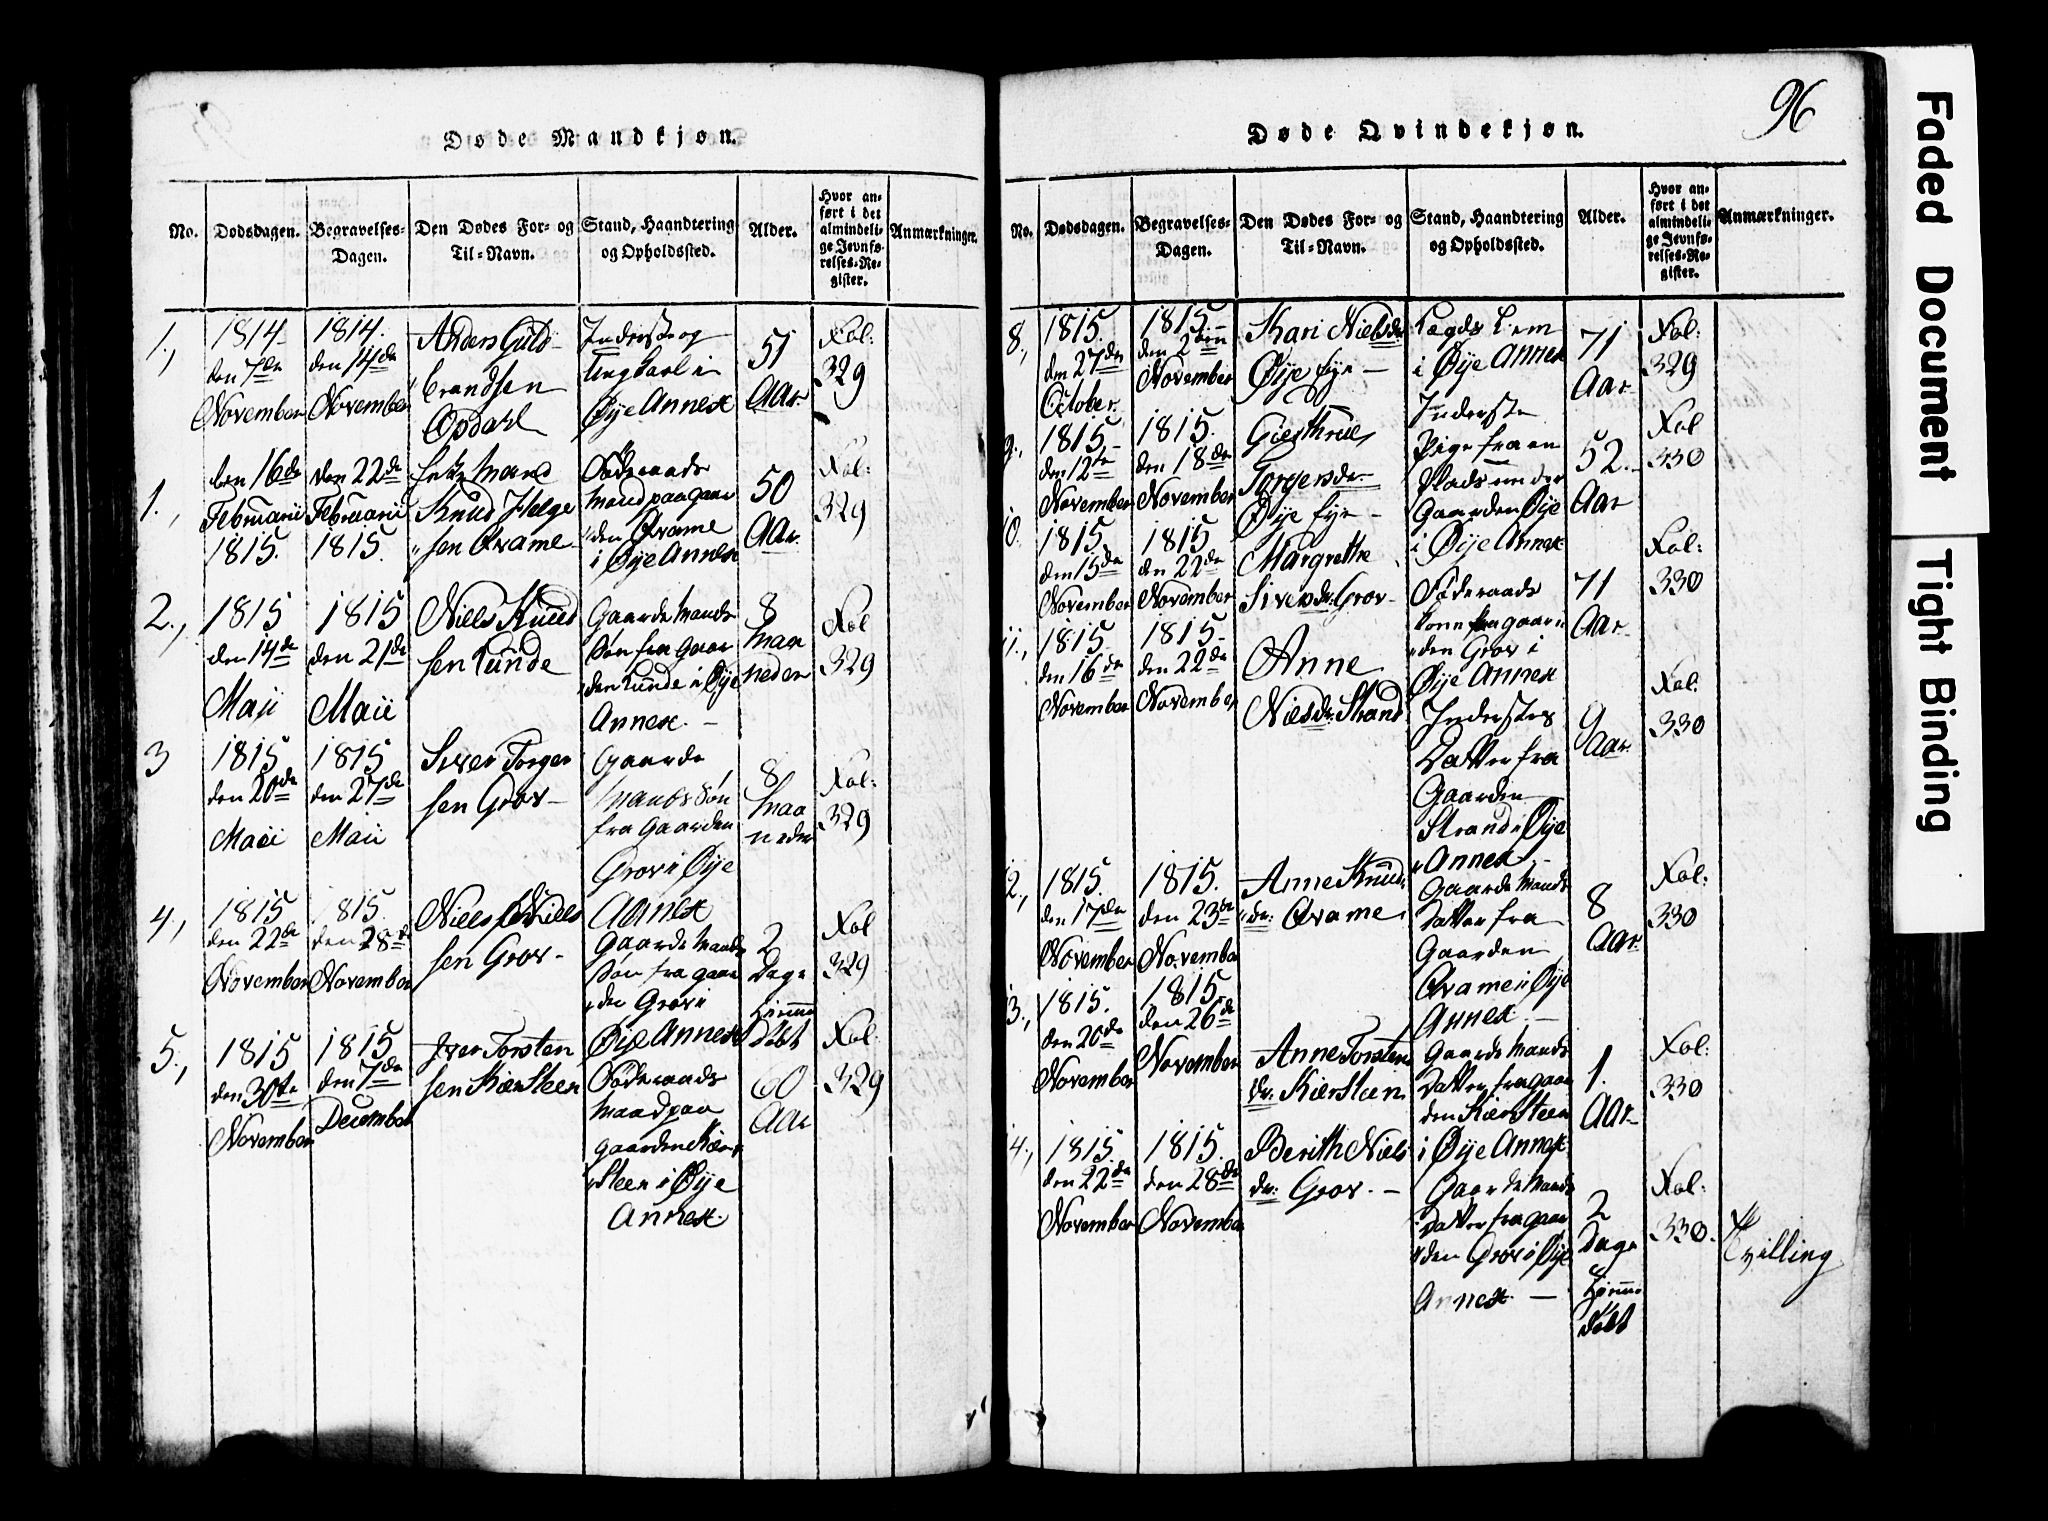 96
Døde Mandkjøn.
No.
Dødsdagen.
Begravelses-
Dagen.
Den Dødes For- og
Til-Navn.
Stand, Haandtering
og Opholdssted.
Alder.
Hvor an-
ført i det
almindeli-
ge Jevnfø-
relses-Re-
gister.
Anmærkninger.
1.,
1814
den 7de
November
1814.
den 14de
November
Anders Guld-
brandsen
Opdahl
Inderst og
Ung Karl i
Øÿe Annex
51
Aar
Fol:
329
1.,
den 16de
Februarii
1815.
den 22de
Februarii
1815.
Knud Helge
sen Qvame
Føderaads
Mand paa Gaar
den Qvame
i Øÿe Annex
50
Aar
Fol:
329
2.,
1815
den 14de
Maji
1815
den 21de
Maii
Niels Knud
sen Lunde
Gaarde Mands
Søn fra Gaar
den Lunde i Øÿe
Annex. –
8
Maa
neder
Fol
329
3
1815
den 20de
Maii
1815
den 27de
Maii
Siver Torger
sen Grov –
Gaarde
Mands Søn
fra Gaarden
Grov i Øÿe
Annex
8
Maa
neder
Fol:
329
4.,
1815
den 22de
November
1815.
den 28de
November
Niels Niels
sen Grov –
Gaarde Mands
Søn fra Gaar
den Grov i
Øÿe Annex
2
Dage
Hiemme
døbt
Fol
329
5.,
1815
den 30te
November
1815
den 7de
December
Iver Torsten
sen Kiersteen
Føderaads
Mand paa
Gaarden Kier
steen i Øÿe
Annex.
60
Aar
Fol:
329
Døde Qvindekjøn.
No.
Dødsdagen.
Begravelses-
Dagen.
Den Dødes For- og
Til-Navn.
Stand, Haandtering
og Opholdssted.
Alder.
Hvor an-
ført i det
almindeli-
ge Jevnfø-
relses-Re-
gister.
Anmærkninger.
8.,
1815.
den 27de
October.
1815
den 2den
November
Kari Nielsdr
Øÿe Eye –
Lægds Lem
i Øÿe Annex
71
Aar
Fol:
329
9.,
1815
den 12te
November
1815.
den 18de
November
Giesthrue
Torgersdr
Øÿe Eye –
Inderste
Pige fra en
Plads under
Gaarden Øÿe
i Øÿe Annex
52.
Aar
Fol
330
10.
1815.
den 15de
November
1815
den 22de
November
Margrethe
Siversdr: Grov –
Føderaads
Kone fra Gaar
den Grov i
Øÿe Annex
71
Aar
Fol:
330
11.,
1815.
den 16de
November
1815.
den 22de
November
Anne
Nielsdr: Strand
Inderstes
Datter fra
Gaarden
Strand i Øÿe
Annex –
9
Aar.
Fol:
330
12.,
1815.
den 17de
November
1815.
den 23de
November
Anne Knuds
dr: Qvame
Gaarde Mands
Datter fra
Gaarden
Qvame i Øÿe
Annex. –
8
Aar.
Fol:
330
13.,
1815.
den 20de
November
1815.
den 26de
November
Anne Torsten
dr: Kiersteen
Gaarde Mands
Datter fra Gaar
den Kiersteen
i Øÿe Annex
1.
Aar
Fol:
330
14.,
1815.
den 22de
November
1815.
den 28de
November
Berith Niels
dr: Grov. –
Gaarde Mands
Datter fra Gaar
den Grov i Øÿe
Annex –
2
Dage
Hiemme
døbt
Fol:
330.
Tvilling
Faded Document
Tight Binding